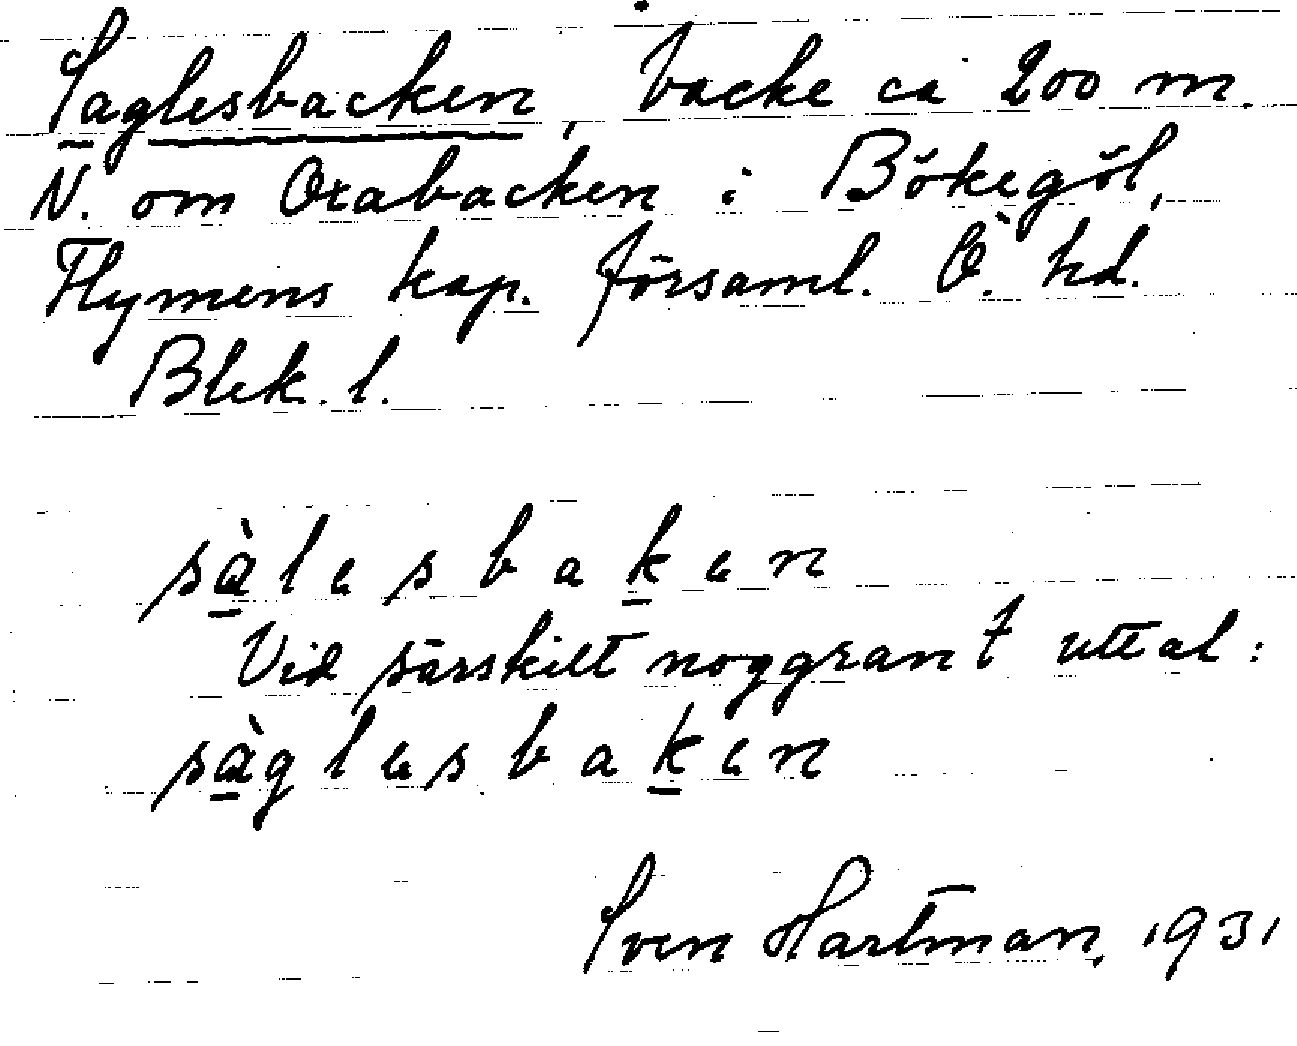 Saglesbacken, backe ca 200 m.
N. om Oxabacken i Bökegöl,
Flymens kap. församl. Ö. hd.
Blek. l.
sàlesbaken
Vid särskilt noggrant uttal:
sàglesbaken
Sven Hartman, 1931